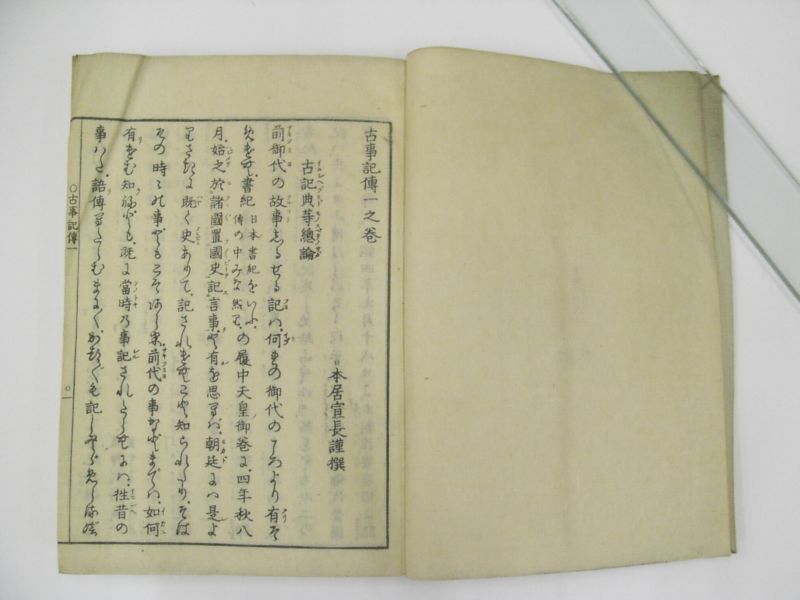 古事記傳一之卷
本居宣長謹撰
古記典等總論
前御代の故事しるせる記は、何れの御代のころより有そ
めけむ、書紀 日本書紀をいふ、傳の中みな然り、の履中天皇御卷に、四年秋八
月、始之於諸國置國史記言事、と有を思へば、朝廷には是よ
りさきに既く史ありて、記されけむこと知られたり、そは
その時々の事どもこそあらめ、前代の事などまでは、如何
有けむ知らねども、既に當時の事記されたらむには、往昔の
事はた、語傳へたらむまに〱、かつ〴〵も記し
○古事記傳一
○一